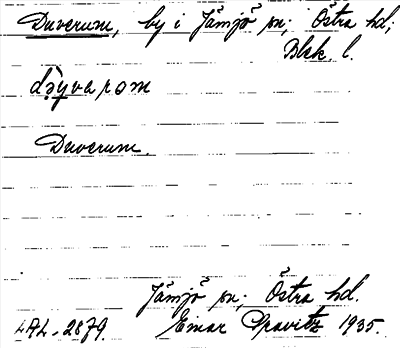 Duverum, by i Jämjö sn; Östra hd;
Blek. l.
Duverum.
Jämjö sn; Östra hd.
LAL-2879. Einar Gravitz 1935.